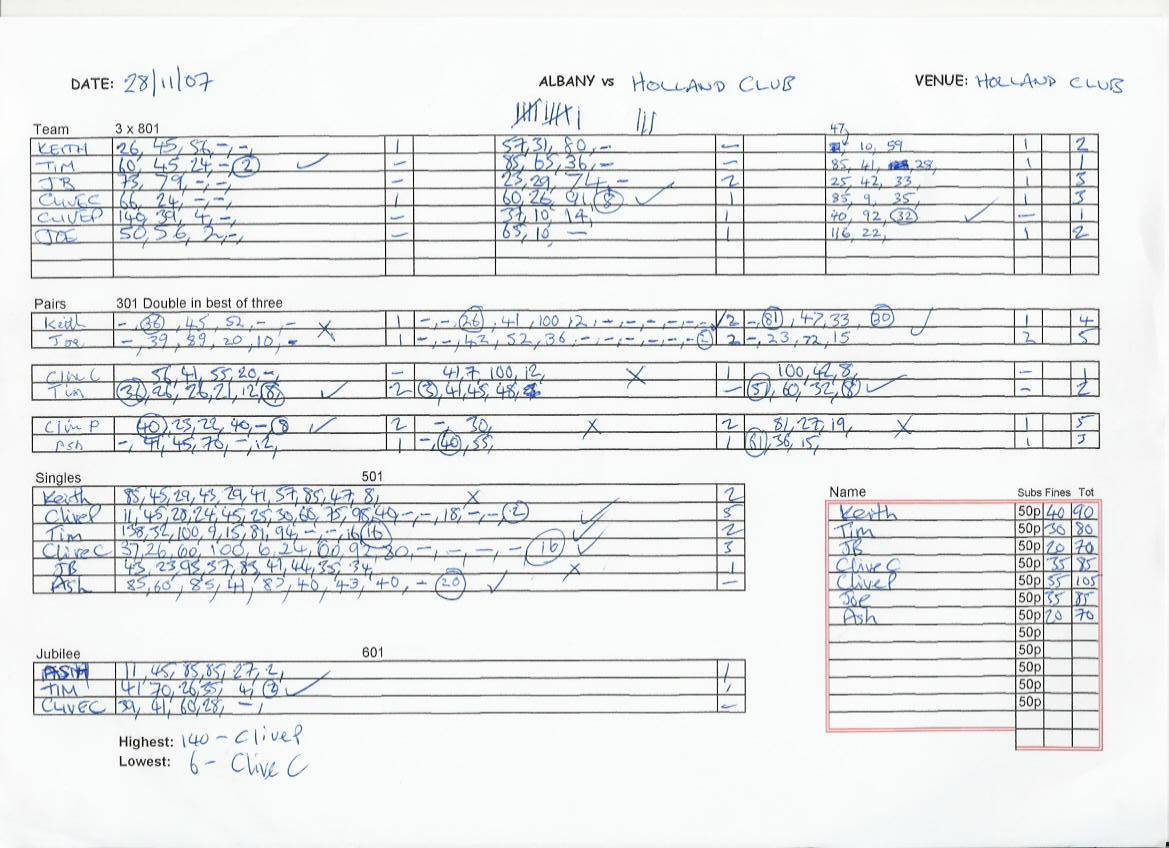 DATE: 28/11/07 ALBANY vs HOLLAND CLUB VENUE: HOLLAND CLUB
Team 3 x 801 47,
KEITH 26, 45, 56, -, -, 1 57, 31, 80, - - 10, 59 1 2
TIM 60, 45, 24, -, 2 ✓ - 85, 65, 36, - - 85, 41, 28, 1 1
JB 75, 79, -, -, - 23, 29, 74, - 2 25, 42, 33, 1 3
CLIVEC 66, 24, -, -, 1 60, 26, 91, 8 ✓ 1 85, 9, 35, 1 3
CLIVEP 140, 39, 4, -, - 37, 10, 14, 1 40, 92, 32 ✓ - 1
JOE 50, 56, 2, -, - 65, 10, - 1 116, 22, 1 2
Pairs 301 Double in best of three
Keith -, 36, 45, 52, -, - X 1 -, -, 26, 41, 100, 12, -, -, -, -, -, ✓ 2 -, 81, 47, 33, 30 ✓ 1 4
Joe -, 39, 89, 20, 10, - 1 -, -, 42, 52, 36, -, -, -, -, -, 2 2 -, 23, 72, 15 2 5
Clive C 56, 41, 55, 20, -, - 41, 7, 100, 12, X 1 100, 42, 8, - 1
Tim 36, 26, 26, 21, 12, 8 ✓ 2 3, 41, 45, 48, - 57, 60, 32, 8 ✓ - 2
Clive P 40, 23, 22, 40, -, 8 ✓ 2 -, 30, X 2 81, 27, 19, X 1 5
Ash -, 41, 45, 70, -, 12, 1 -, 40, 55, 1 81, 36, 15, 1 3
Singles 501
Keith 85, 45, 29, 43, 29, 41, 57, 85, 47, 8, X 2
CliveP 11, 45, 28, 24, 45, 25, 30, 60, 75, 98, 40, -, -, 18, -, -, 2 ✓ 5
Tim 138, 32, 100, 9, 15, 81, 94, -, -, 16, 16 ✓ 2
Clive C 37, 26, 60, 100, 6, 24, 60, 92, 80, -, -, -, -, 16 ✓ 3
JB 43, 23, 95, 37, 83, 41, 44, 35, 34, X 1
Ash 85, 60, 85, 41, 87, 40, 43, 40, - 20 ✓ -
Name Subs Fines Tot
Keith 50p 40 90
Tim 50p 30 80
JB 50p 20 70
Clive C 50p 35 85
CliveP 50p 55 105
Joe 50p 35 85
Ash 50p 20 70
50p
50p
50p
50p
50p
Jubilee 601
ASH 11, 45, 85, 85, 27, 2, 1
TIM 41, 70, 26, 35, 4, 2 ✓ 1
CLIVEC 39, 41, 60, 28, -, -
Highest: 140 - CliveP
Lowest: 6 - Clive C